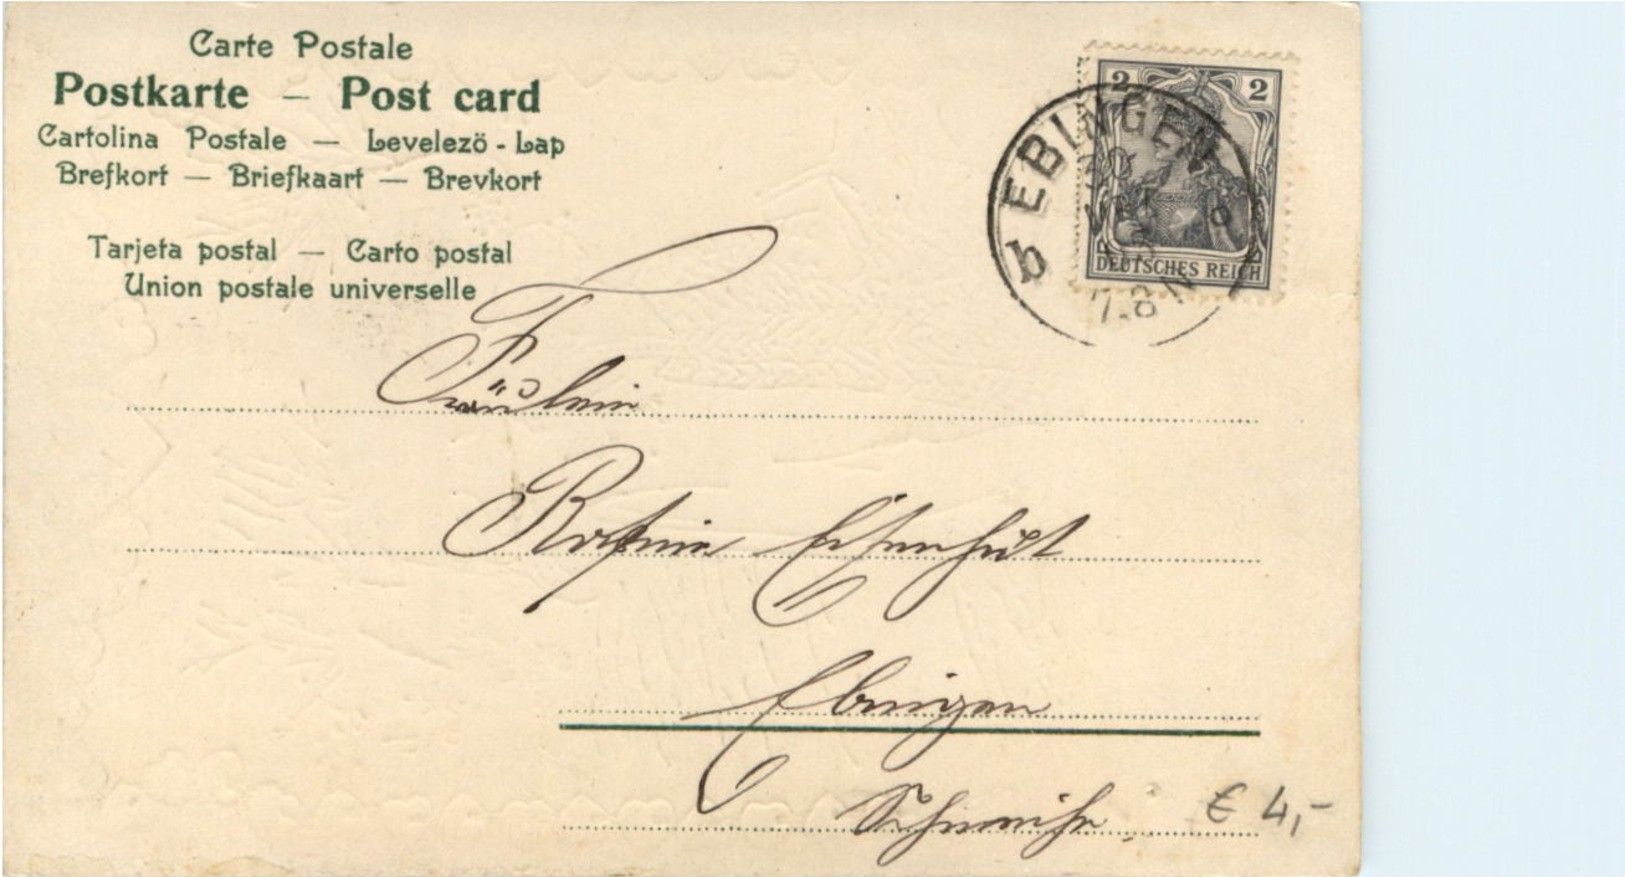 Carte Postale
Postkarte — Post card
Cartolina Postale — Levelező - Lap
Brefkort — Briefkaart — Brevkort
Tarjeta postal — Carto postal
Union postale universelle
2 2
DEUTSCHES REICH
b EBINGEN
7-8 N
Fräulein
Ebingen
€ 4,-